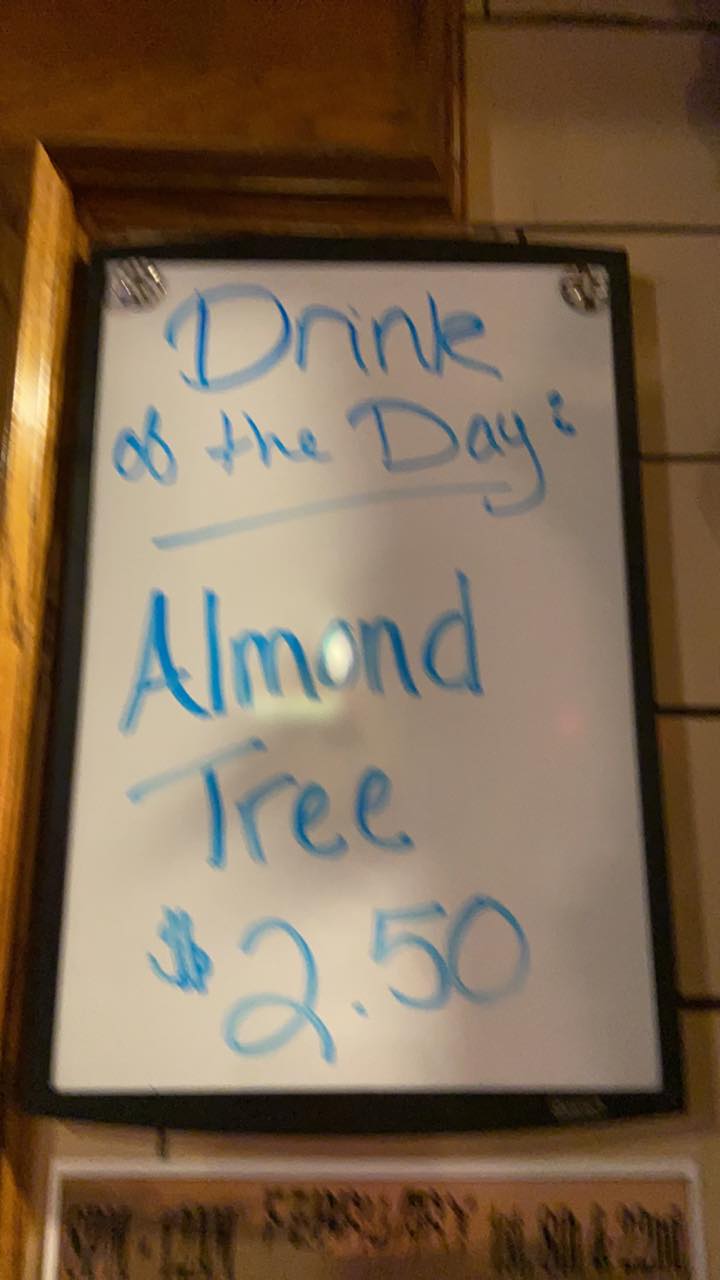 Drink
of the Day:
Almond
Tree
$2.50
FEBRUARY